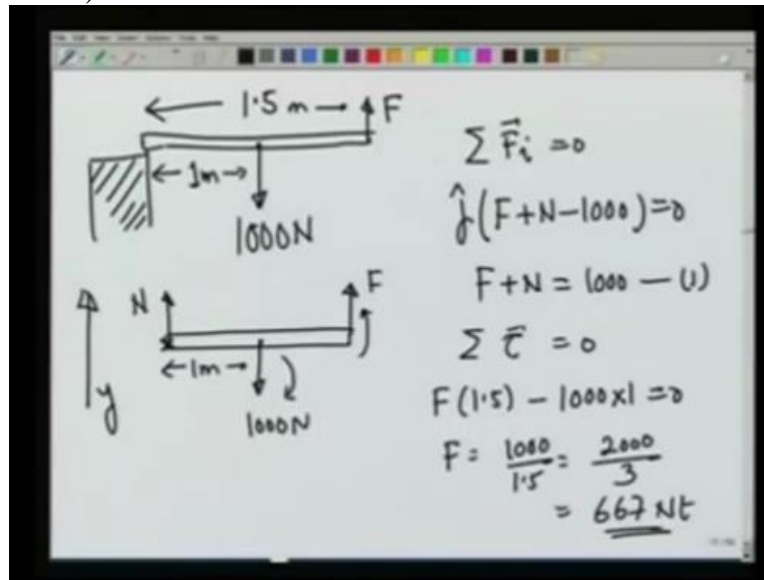 1.5 m
F
1m
1000N
N
F
1m
1000N
y
Σ F⃗i = 0
ĵ(F+N−1000)=0
F+N = 1000 — (1)
Σ τ⃗ = 0
F(1.5) − 1000×1 = 0
F = 1000/1.5 = 2000/3
= 667 Nt